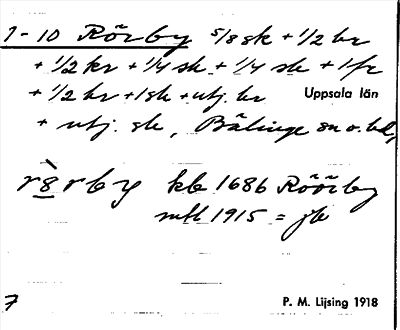 1-10 Rörby 5/8 sk + 1/2 kr
+ 1/2 kr + 1/4 sk + 1/4 sk + 1 fr
+ 1/2 kr + 1 sk + utj. kr Uppsala län
+ utj. sk, Bälinge sn o. hd,
kb 1686 Röörby
mtl 1915 = jb
7 P. M. Lijsing 1918